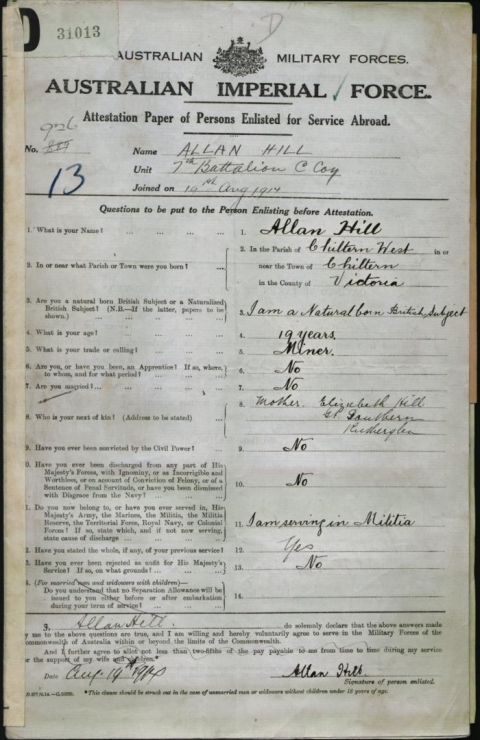 D
31013
D
AUSTRALIAN MILITARY FORCES.
AUSTRALIAN IMPERIAL FORCE.
Attestation Paper of Persons Enlisted for Service Abroad.
926
No. 889
13
Name ALLAN HILL
Unit 7th Battalion C Coy
Joined on 19th Aug 1914
Questions to be put to the Person Enlisting before Attestation.
1. What is your Name? ... 1. Allan Hill
2. In or near what Parish or Town were you born? ... 2. In the Parish of Chiltern West in or
near the Town of Chiltern
in the County of Victoria
3. Are you a natural born British Subject or a Naturalized
British Subject? (N.B.—If the latter, papers to be
shown.) ... 3. I am a Natural born British Subject
4. What is your age? ... 4. 19 years.
5. What is your trade or calling? ... 5. Miner.
6. Are you, or have you been, an Apprentice? If so, where,
to whom, and for what period? ... 6. No
7. Are you married? ... 7. No
8. Who is your next of kin? (Address to be stated) ... 8. Mother. Elizabeth Hill
Gt Southern
Rutherglen
9. Have you ever been convicted by the Civil Power? ... 9. No
0. Have you ever been discharged from any part of His
Majesty's Forces, with Ignominy, or as Incorrigible and
Worthless, or on account of Conviction of Felony, or of a
Sentence of Penal Servitude, or have you been dismissed
with Disgrace from the Navy? ... 10. No
1. Do you now belong to, or have you ever served in, His
Majesty's Army, the Marines, the Militia, the Militia
Reserve, the Territorial Force, Royal Navy, or Colonial
Forces? If so, state which, and if not now serving,
state cause of discharge ... 11. I am serving in Militia
2. Have you stated the whole, if any, of your previous service? 12. Yes
3. Have you ever been rejected as unfit for His Majesty's
Service? If so, on what grounds? ... 13. No
4. (For married men and widowers with children)—
Do you understand that no Separation Allowance will be
issued to you either before or after embarkation
during your term of service? ... 14.
3, Allan Hill. do solemnly declare that the above answers made
by me to the above questions are true, and I am willing and hereby voluntarily agree to serve in the Military Forces of the
Commonwealth of Australia within or beyond the limits of the Commonwealth.
And I further agree to allot not less than two-fifths of the pay payable to me from time to time during my service
for the support of my wife and children.*
Date Aug 19th 1914 Allan Hill
Signature of person enlisted.
*This clause should be struck out in the case of unmarried men or widowers without children under 18 years of age.